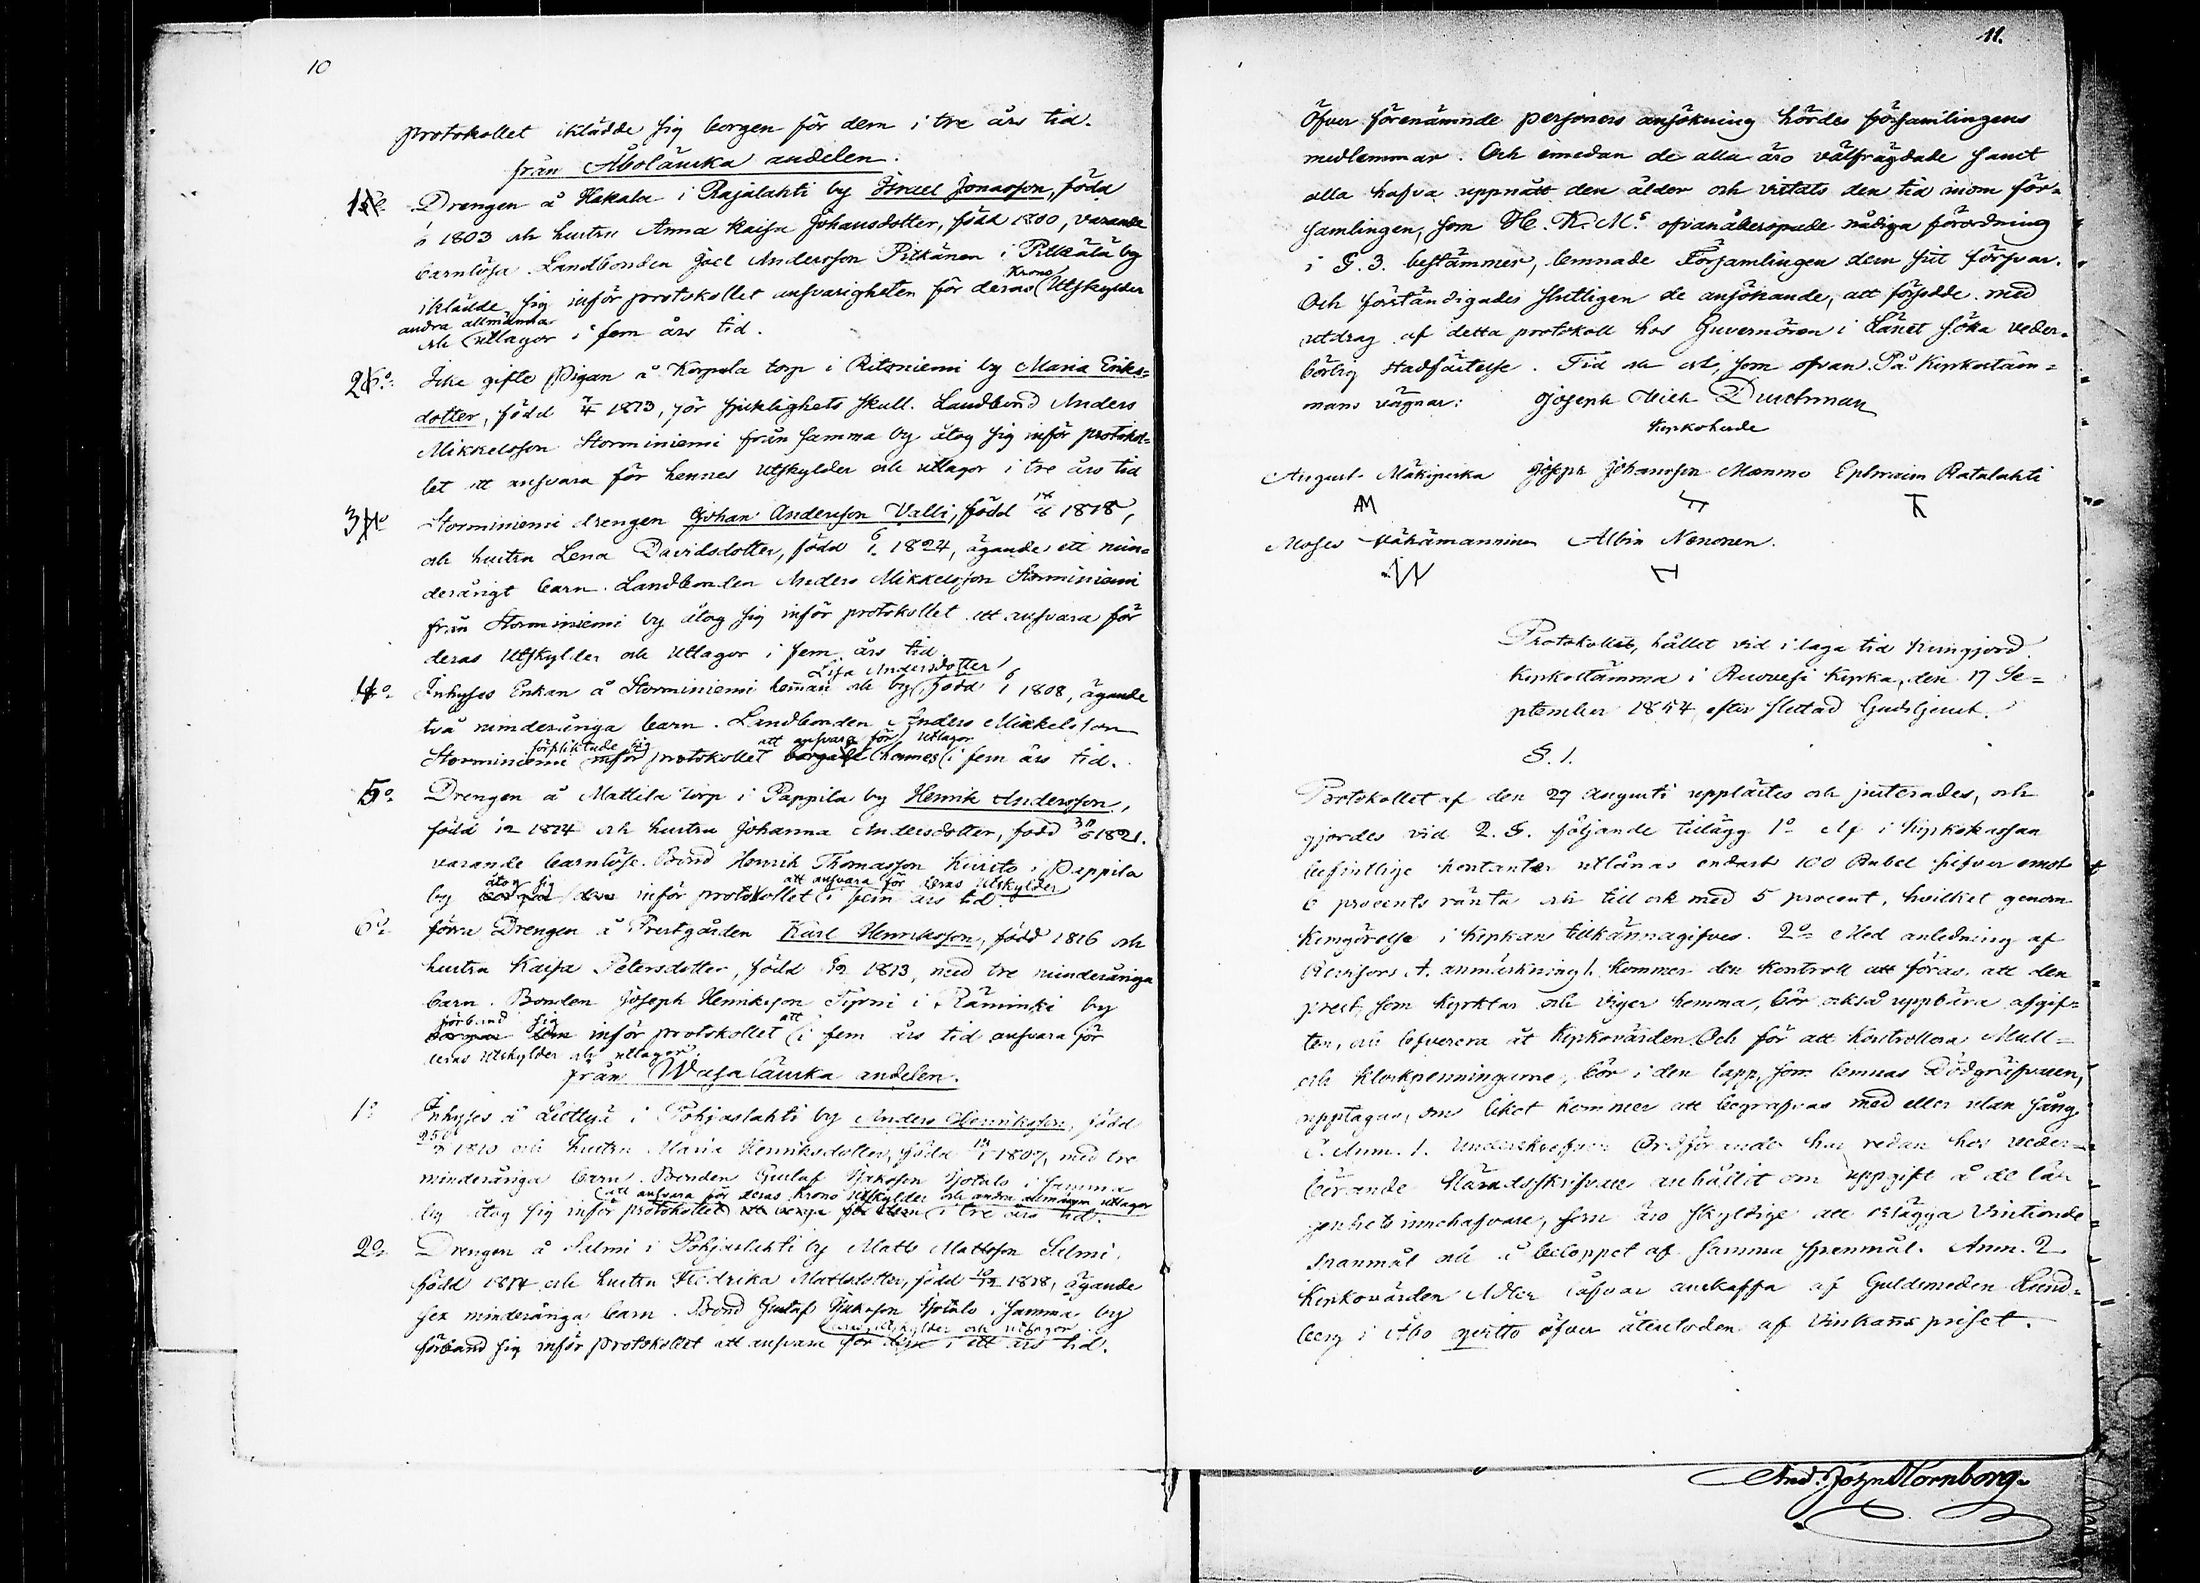 10
protokollet iklädde sig borgen för dem i tre års tid.
från Åbolänska andelen.
1o Drengen å Hakala i Rajalahti by Israel Jonasson, född
1803 och hustru Anna Kaisa Johansdotter, född 1800, varande
barnlösa. Landbonden Joel Andersson Pitkänen i Pitkälä by
iklädde sig inför protokollet ansvarigheten för deras Krono Utskylder
och andra allmänna utlagor i fem års tid.
2o Icke gifte Pigan å Korpula torp i Ritoniemi by Maria Eriks=
dotter, född 1813, för sjuklighets skull. Landbond Anders
Mikkelsson Storminiemi från samma by åtog sig inför protokol=
let att ansvara för hennes Utskylder och utlagor i tre års tid
3o Storminiemi drengen Johan Andersson Valli, född 1818,
och hustru Lena Davidsdotter, född 1824, ägande ett min=
derårigt barn. Landbonden Anders Mikkelsson Storminiemi
från Storminiemi by åtog sig inför protokollet att ansvara för
deras Utskylder och Utlagor i fem års tid.
4o Inhyses Enkan å Storminiemi heman och by Lisa Andersdotter född 1808, ägande
två minderåriga barn. Landbonden Anders Mikkelsson
Storminiemi förpliktade sig inför protokollet att ansvara för hennes utlagor i fem års tid.
5o Drengen å Mattila torp i Pappila by Henrik Andersson,
född 1824 och hustru Johanna Andersdotter, född 1821.
varande barnlöse. Bond Henrik Thomasson Kuivito i Pappila
by åtog sig inför protokollet att ansvara för deras Utskylder i fem års tid.
6o förra Drengen å Prestgården Karl Henriksson, född 1816 och
hustru Kaisa Petersdotter, född 1813, med tre minderåriga
barn. Bonden Joseph Henriksson Tyrni i Räminki by
förband sig inför protokollet att i fem års tid ansvara för
deras Utskylder och utlagor.
från Wasa länska andelen.
1o Inhyses å Liettyä i Pohjaslahti by Anders Henriksson, född
1810 och hustru Maria Henriksdotter, född 1807, med tre
minderåriga barn. Bonden Gustaf Isaksson Sjotalo i samma
by åtog sig inför protokollet att ansvara för deras Krono Utskylder och andra allmänna utlagor i tre års tid.
2o Drengen å Selmi i Pohjaslahti by Matts Mattsson Selmi,
född 1814 och hustru Fredrika Mattsdotter, född 1818, ägande
sex minderåriga barn. Bond Gustaf Isaksson Sjotalo i samma by
förband sig inför protokollet att ansvara för deras Utskylder och utlagor i ett års tid.
11.
Öfver förenämnde personers ansökning hördes församlingens
medlemmar. Och emedan de alla äro välfrägdade samt
alla hafva uppnått den ålder och vistats den tid inom för=
samlingen, som H. K. M:s ofvanåberopade nådiga förordning
i §. 3. bestämmer, lemnade Församlingen dem sitt försvar.
Och förständigades slutligen de ansökande, att försedde med
utdrag af detta protokoll hos Guvernören i Länet söka veder=
börlig stadfästelse. Tid och ort, som ofvan. På Kyrkostäm=
mans vägnar: Joseph Mich Durchman
Kyrkoherde
August Mäkipiska Joseph Johansson Mannio Ephraim Ratalahti
Moses Vähämanninen Albin Nenonen.
Protokollet, hållet vid i laga tid kungjord
Kyrkostämma i Ruovesi Kyrka, den 17 Se=
ptember 1854 efter slutad Gudstjenst.
§. 1.
Protokollet af den 27 Augusti upplästes och justerades, och
gjordes vid 2. §. följande tillägg 1o Af i Kyrkokassan
befintlige kontanter utlånas endast 100 Rubel silfver emot
6 procents ränta och till och med 5 procent, hvilket genom
Kungörelse i Kyrkan tillkännagifves. 2o Med anledning af
Revisors A. anmärkning 1. kommer den kontroll att föras, att den
prest, som kyrktar och viger hemma, bör också uppbära afgif=
ten, och lefverera åt Kyrkovärden. Och för att kontrollera Mull=
och Klockpenningarne, bör i den lapp, som lemnas Dödgräfvaren,
upptagas, om liket kommer att begrafvas med eller utan sång.
Anm. 1. Underskrefven Ordförande har redan hos veder=
börande Häradsskrifvare anhållit om uppgift å de lä=
genhets innehafvare, som äro skyldige att erlägga Vintionde
spanmål och å beloppet af samma spanmål. Anm. 2
Kyrkovärden Adler lofvar anskaffa af Guldsmeden Lind=
berg i Åbo qvitto öfver återstoden af Vinkanspriset.
And. John Hornborg